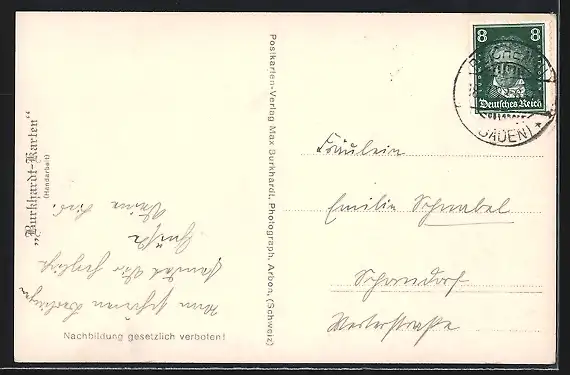 „Burkhardt-Karten“
(Handarbeit)
Vom schönen
sendet Dir herzliche
Grüße
Deine
Nachbildung gesetzlich verboten!
Postkarten-Verlag Max Burkhardt, Photograph, Arbon, (Schweiz)
8 8
Deutsches Reich
(BADEN) *
Fräulein
Emilie Schwabel
Schorndorf
Vorstadtstraße